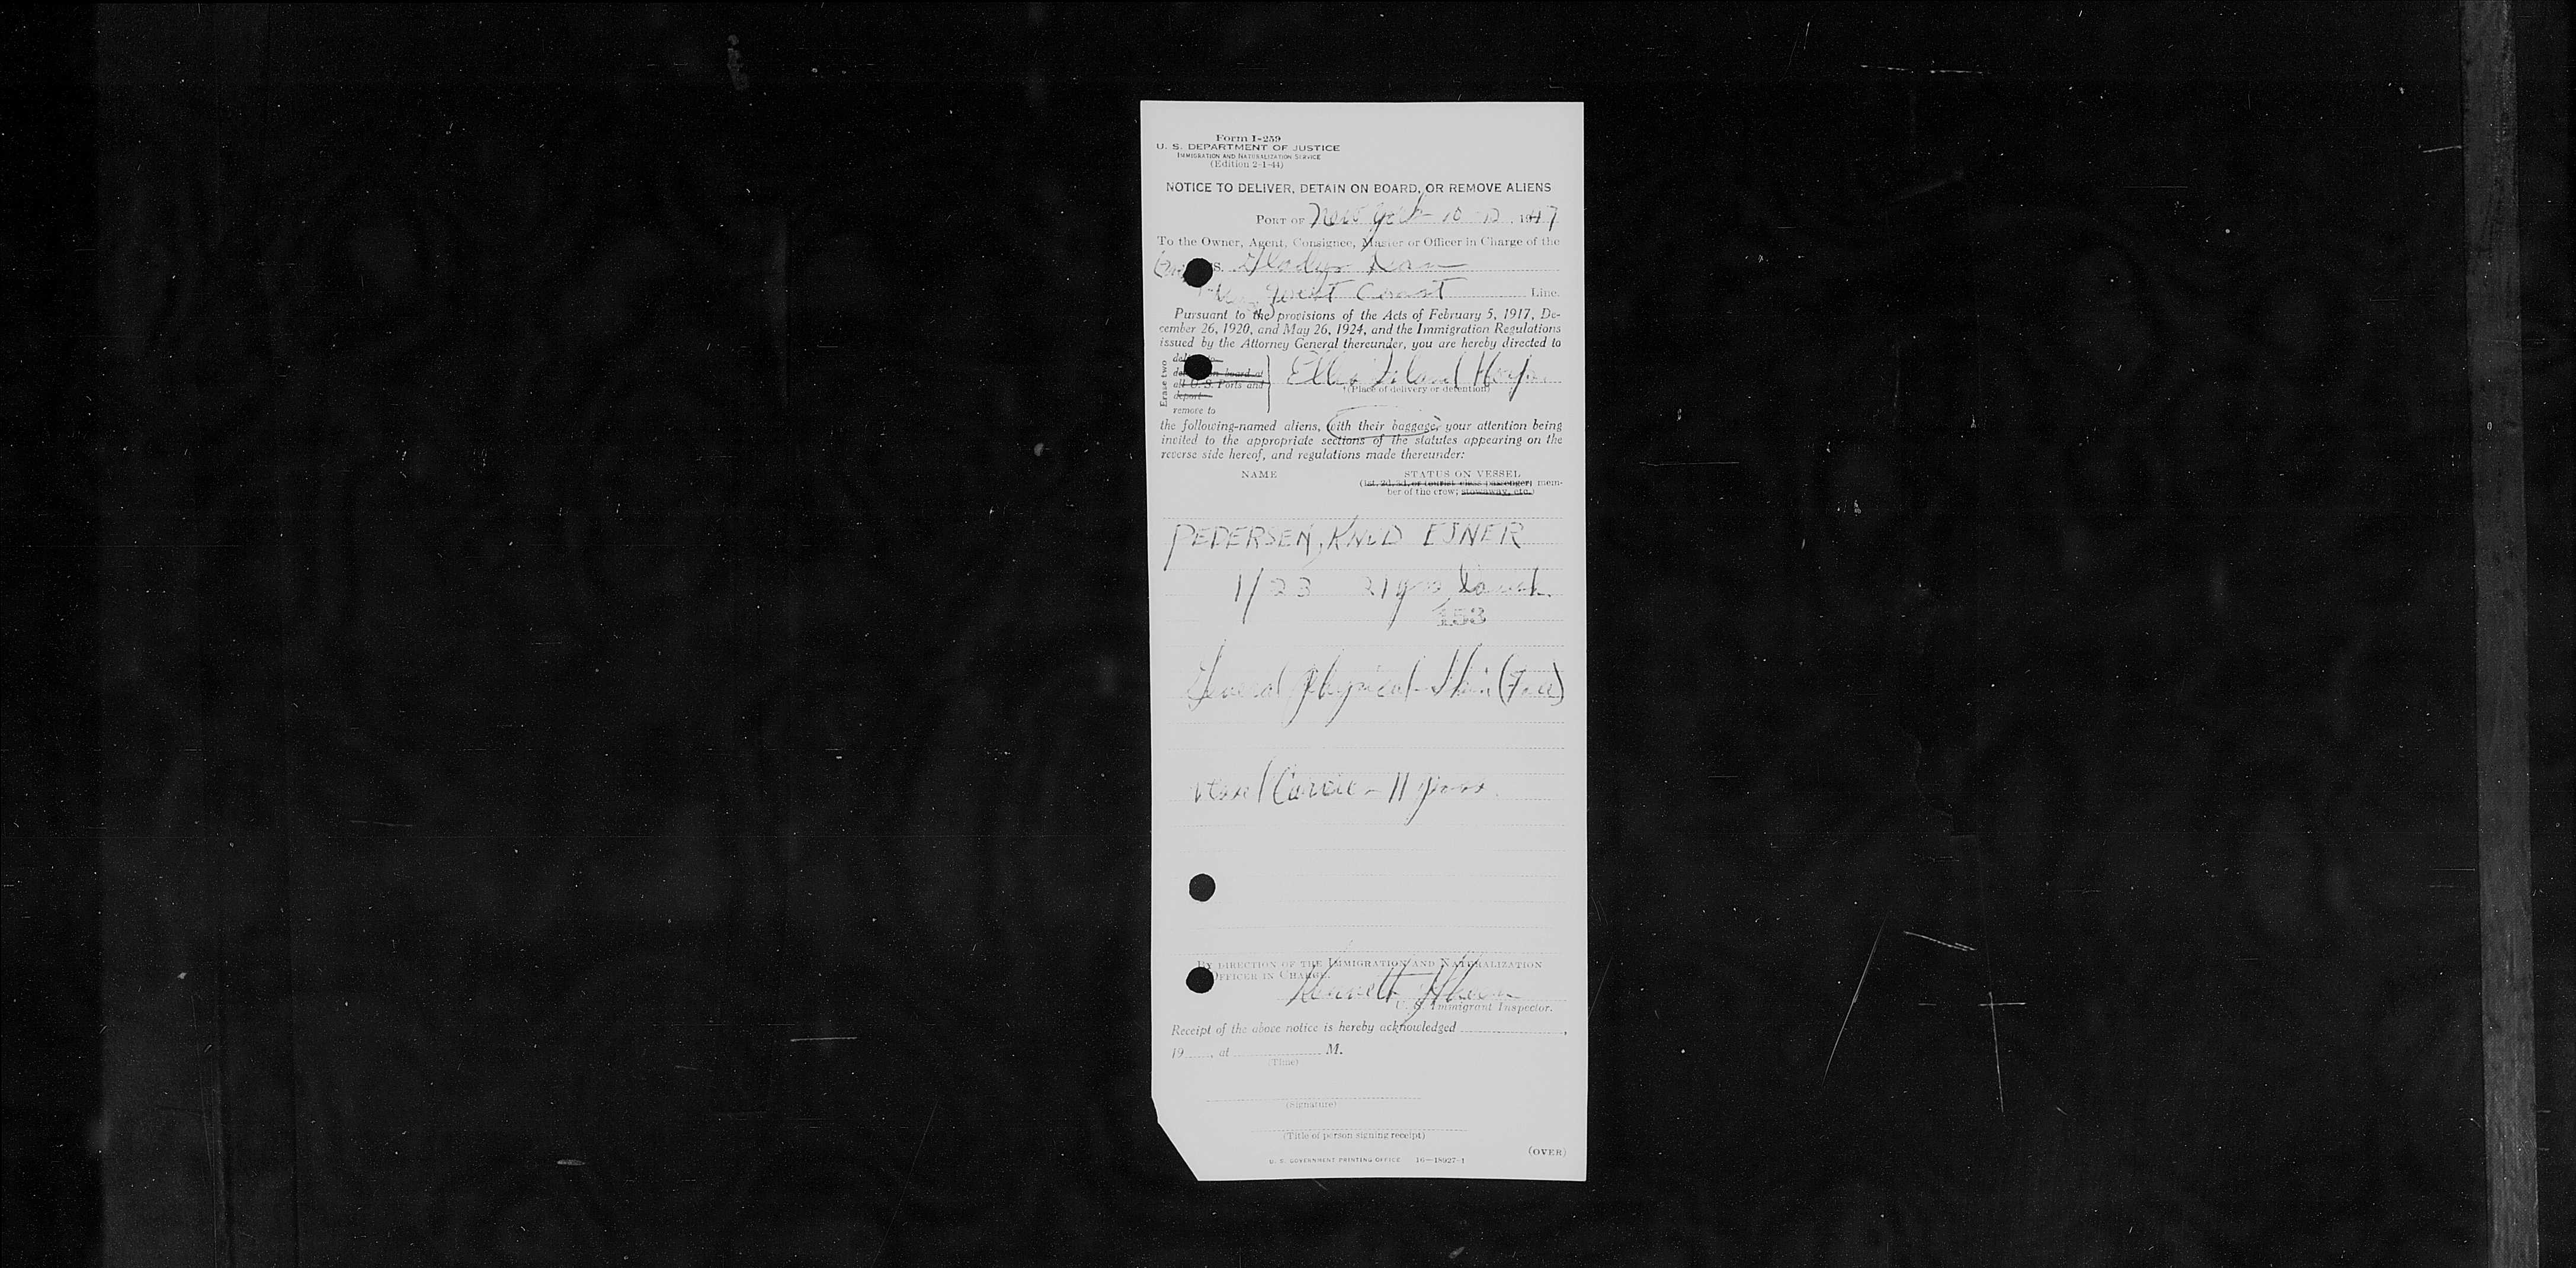 Form I-259
U. S. DEPARTMENT OF JUSTICE
IMMIGRATION AND NATURALIZATION SERVICE
(Edition 2-1-44)
NOTICE TO DELIVER, DETAIN ON BOARD, OR REMOVE ALIENS
PORT OF New York 10 - 12, 1947
To the Owner, Agent, Consignee, Master or Officer in Charge of the
S. Gladys
West Coast Line.
Pursuant to the provisions of the Acts of February 5, 1917, De-
cember 26, 1920, and May 26, 1924, and the Immigration Regulations
issued by the Attorney General thereunder, you are hereby directed to
Erase two
on board at
all U. S. Ports and
deport
remove to
Ellis Island Hosp.
(Place of delivery or detention)
the following-named aliens, with their baggage, your attention being
invited to the appropriate sections of the statutes appearing on the
reverse side hereof, and regulations made thereunder:
NAME STATUS ON VESSEL
(1st, 2d, 3d, or tourist class passenger; mem-
ber of the crew; stowaway, etc.)
PEDERSEN, KNUD EJNER
1/23 21 yrs Danish
153
General Physical - Skin (Face)
11
BY DIRECTION OF THE IMMIGRATION AND NATURALIZATION
OFFICER IN CHARGE.
Kenneth
U. S. Immigrant Inspector.
Receipt of the above notice is hereby acknowledged ,
19 , at M.
(Time)
(Signature)
(Title of person signing receipt)
(OVER)
U. S. GOVERNMENT PRINTING OFFICE 16—18027-1